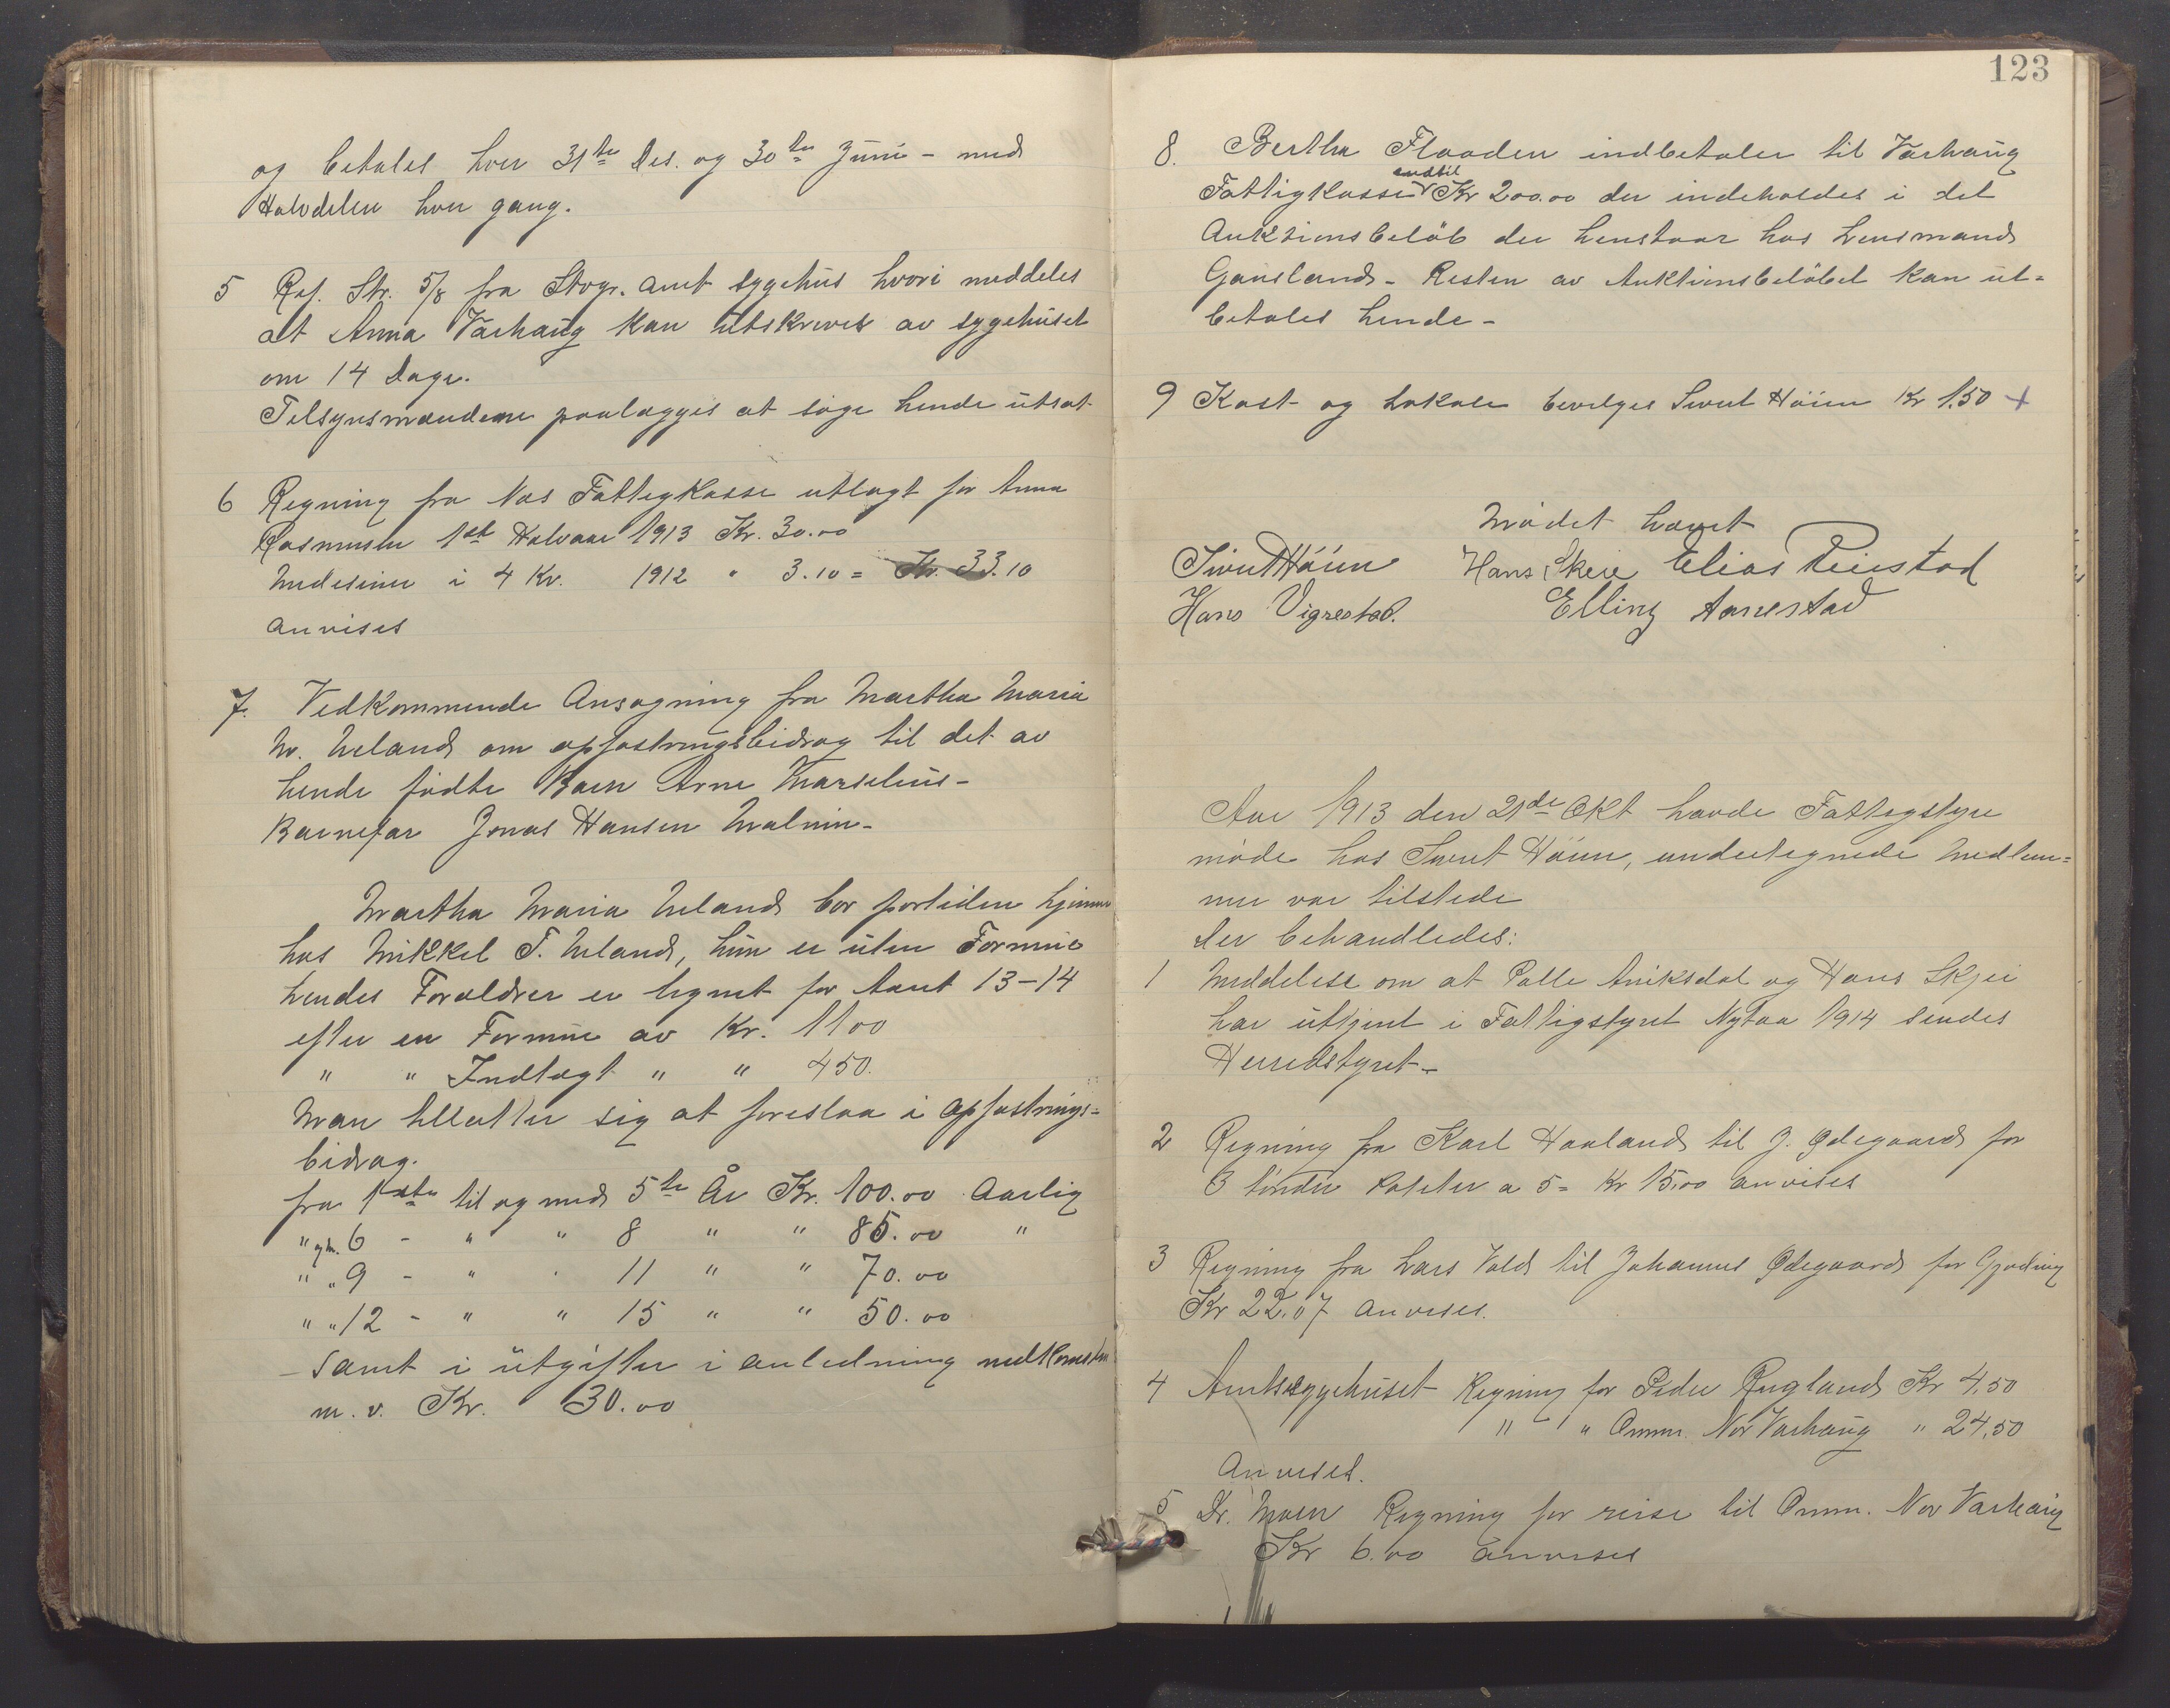 og betales hver 31te Des. og 30te Juni - med
Halvdelen hver gang.
5 Ref. Skr. 5/8 fra Stvgr. amt sygehus hvori meddeles
at Anna Varhaug kan utskrives av sygehuset
om 14 Dage.
Tilsynsmændene paalægges at søge hende utsat
6 Regning fra Nas Fattigkasse utlagt for Anna
Rasmusen 1ste Halvaar 1913 Kr. 30.00
Medesiner i 4 Kv. 1912 " 3.10 = Kr. 33.10
anvises
7. Vedkommende Ansøgning fra Martha Maria
M. Ueland om opfostringsbidrag til det av
hende fødte Barn Arne Marselius -
Barnefar Jonas Hansen Malmin -
Martha Maria Ueland bor fortiden hjemme
hos Mikkel T. Ueland, hun er uten Formue
hendes Forældrer er lignet for Aaret 13-14
efter en Formue av Kr. 1100
" " Indtægt " " 450.
Man tillatter sig at foreslaa i opfostrings=
bidrag.
fra 1ste til og med 5te År Kr. 100.00 Aarlig
" " 6 - " " 8 " " 85.00 "
" " 9 - " " 11 " " 70.00
" " 12 - " " 15 " " 50.00
- samt i utgifter i anledning nedkomsten
m. v. Kr. 30.00
123
8. Bertha Flaaden indbetaler til Varhaug
indtil
Fattigkasse Kr 200.00 der indeholdes i det
Auktionsbeløb der henstaar hos Lensmand
Gausland - Resten av Auktionsbeløbet kan ut=
betales hende -
9 Kost- og Lokale bevilges Sivert Höien Kr 1.50 +
Mødet hævet
Sivert Höien Hans Skeie Elias Reiestad
Hans Vigrestad. Elling Aanestad
Aar 1913 den 21de Okt havde Fattigstyre
møde hos Sivert Höien, undertegnede Medlem=
mer var tilstede
der behandledes:
1 Meddelese om at Palle Aniksdal og Hans Skjei
har uttjent i Fattigstyret Nytaar 1914 sendes
Herredstyret -
2 Regning fra Karl Haaland til J. Ødegaard for
3 tønder Poteter a 5 = Kr 15.00 anvises
3 Regning fra Lars Vold til Johannes Ødegaard for Gjødning
Kr 22.07 anvises.
4 Amtssygehuset Regning for Peder Rugland Kr 4.50
" " Omm. Nor Varhaug " 24.50
Anvises.
5 Dr. Moen Regning for reise til Omm. Nor Varhaug
Kr 6.00 anvises